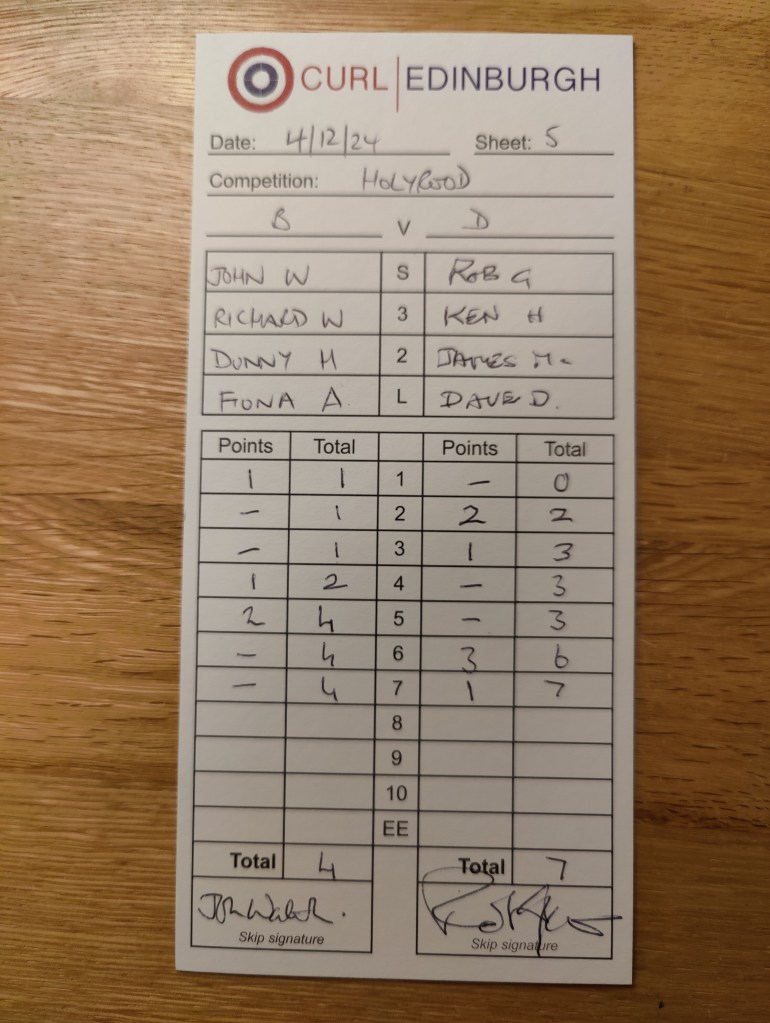 CURL|EDINBURGH
Date: 4/12/24 Sheet: 5
Competition: HOLYROOD
B V D
JOHN W S ROB G
RICHARD W 3 KEN H
DUNNY M 2 JAMES M
FIONA A. L DAVE D.
Points Total Points Total
1 1 1 - 0
- 1 2 2 2
- 1 3 1 3
1 2 4 - 3
2 4 5 - 3
- 4 6 3 6
- 4 7 1 7
8
9
10
EE
Total 4 Total 7
Skip signature Skip signature